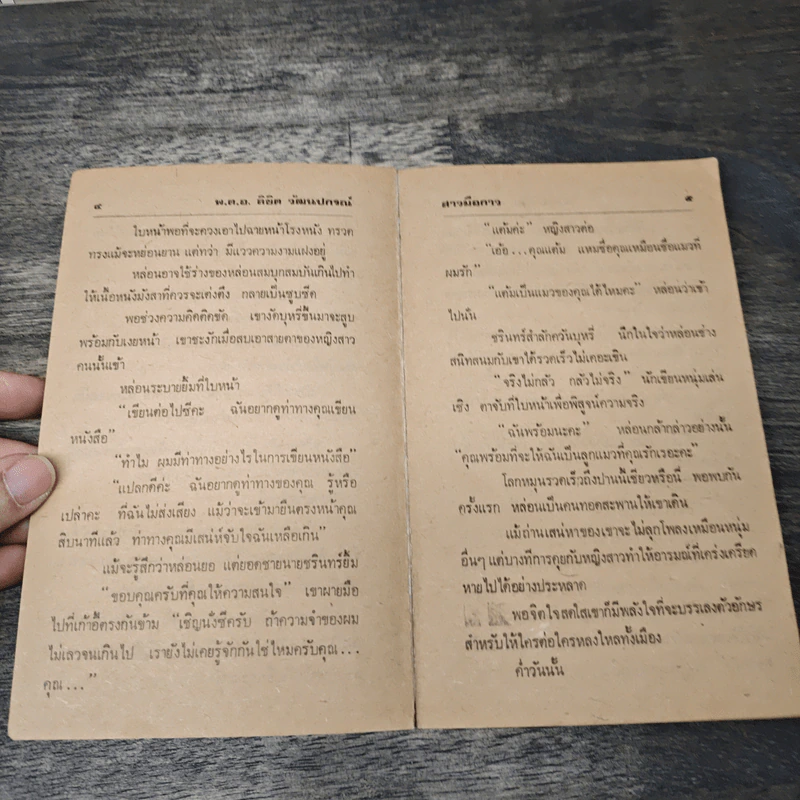 ๔ พ.ต.อ. ลิขิต วัฒนปกรณ์
ใบหน้าพอที่จะควงเอาไปฉายหน้าโรงหนัง ทรวด
ทรงแม้จะหย่อนยาน แต่ทว่า มีแววความงามแฝงอยู่
หล่อนอาจใช้ร่างของหล่อนสมบุกสมบันเกินไปทำ
ให้เนื้อหนังมังสาที่ควรจะเต่งตึง กลายเป็นซูบซีด
พอช่วงความคิดติดขัด เขางัดบุหรี่ขึ้นมาจะสูบ
พร้อมกับเงยหน้า เขาชะงักเมื่อสบเอาสายตาของหญิงสาว
คนนั้นเข้า
หล่อนระบายยิ้มที่ใบหน้า
“เขียนต่อไปซีคะ ฉันอยากดูท่าทางคุณเขียน
หนังสือ”
“ทำไม ผมมีท่าทางอย่างไรในการเขียนหนังสือ”
“แปลกดีค่ะ ฉันอยากดูท่าทางของคุณ รู้หรือ
เปล่าคะ ที่ฉันไม่ส่งเสียง แม้ว่าจะเข้ามายืนตรงหน้าคุณ
สิบนาทีแล้ว ท่าทางคุณมีเสน่ห์จับใจฉันเหลือเกิน”
แม้จะรู้สึกว่าหล่อนยอ แต่ยอดชายนายชรินทร์ยิ้ม
“ขอบคุณครับที่คุณให้ความสนใจ” เขาผายมือ
ไปที่เก้าอี้ตรงกันข้าม “เชิญนั่งซีครับ ถ้าความจำของผม
ไม่เลวจนเกินไป เรายังไม่เคยรู้จักกันใช่ไหมครับคุณ...
คุณ...”
สาวมือกาว ๕
“แต้มค่ะ” หญิงสาวต่อ
“เอ้อ...คุณแต้ม แหมชื่อคุณเหมือนชื่อแมวที่
ผมรัก”
“แต้มเป็นแมวของคุณได้ไหมคะ” หล่อนว่าเข้า
ไปนั่น
ชรินทร์สำลักควันบุหรี่ นึกในใจว่าหล่อนช่าง
สนิทสนมกับเขาได้รวดเร็วไม่เคอะเขิน
“จริงไม่กลัว กลัวไม่จริง” นักเขียนหนุ่มเล่น
เชิง ตาจับที่ใบหน้าเพื่อพิสูจน์ความจริง
“ฉันพร้อมนะคะ” หล่อนกล้ากล่าวอย่างนั้น
“คุณพร้อมที่จะให้ฉันเป็นลูกแมวที่คุณรักเรอะคะ”
โลกหมุนรวดเร็วถึงปานนี้เชียวหรือนี่ พอพบกัน
ครั้งแรก หล่อนเป็นคนทอดสะพานให้เขาเดิน
แม้ถ่านเสน่หาของเขาจะไม่ลุกโพลงเหมือนหนุ่ม
อื่นๆ แต่บางทีการคุยกับหญิงสาวทำให้อารมณ์ที่เคร่งเครียด
หายไปได้อย่างประหลาด
พอจิตใจสดใสเขาก็มีพลังใจที่จะบรรเลงตัวอักษร
สำหรับให้ใครต่อใครหลงใหลทั้งเมือง
ค่ำวันนั้น